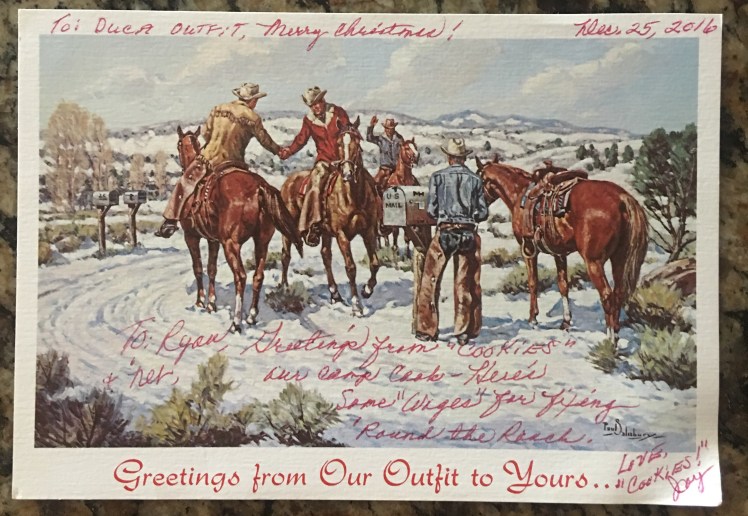 To: Duca Outfit, Merry Christmas!
Dec. 25, 2016
U S
MAIL
To: Ryan Greeting's from "COOKIES"
+ 'Net, our camp cook - Here's
Some "Wages" for fixing
'Round the Ranch.
Paul Salisbury
Greetings from Our Outfit to Yours...
LOVE,
"COOKIES!"
Jay